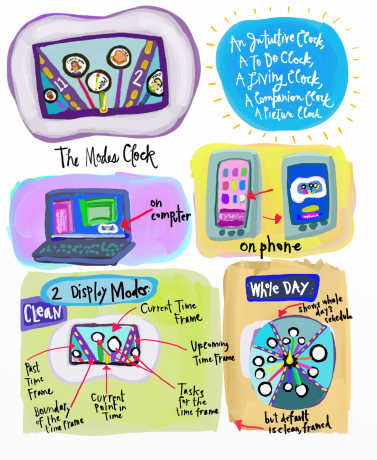 11
2
An Intuitive Clock,
A To Do Clock,
A Living Clock,
A Companion Clock
A Picture Clock
The Modes Clock
on
computer
on phone
2 Display Modes:
CLEAN
Current Time
Frame
Past
Time
Frame
Upcoming
Time Frame
Boundary
of the
time frame
Current
Point in
Time
Tasks
for the
time frame
WHOLE DAY:
shows whole
day's
schedule
but default
is clean, framed